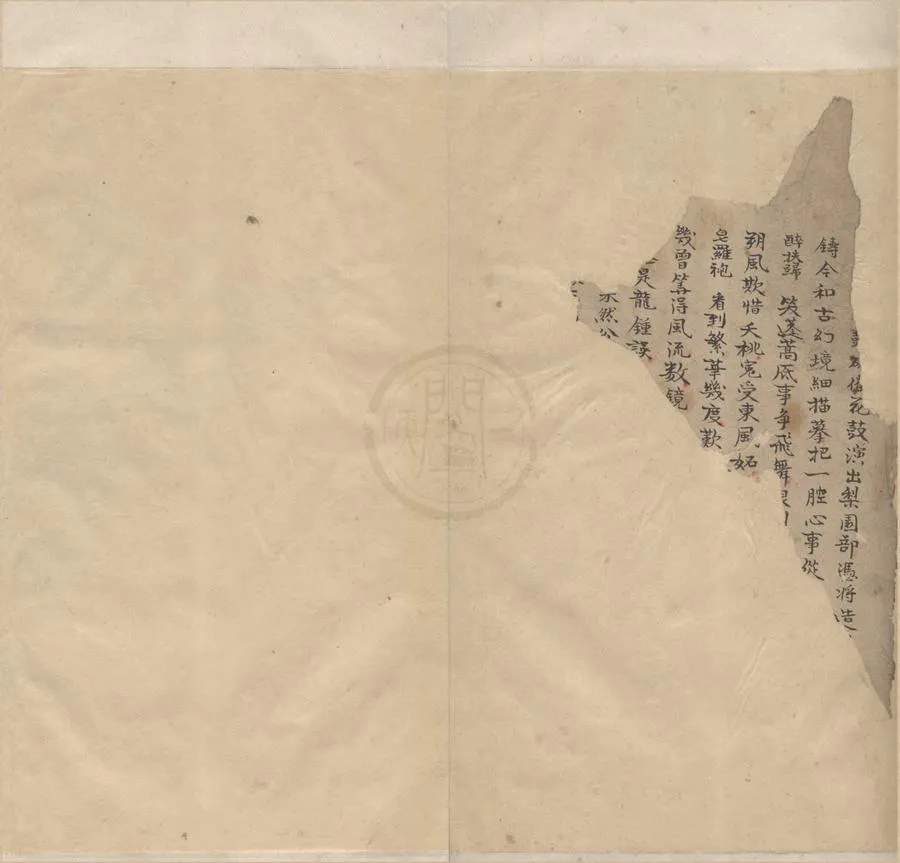 花鼓演出梨園部憑將造
鑄今和古幻境細描摹把一腔心事從
醉扶歸 笑蓬蒿底事爭飛舞
朔風欺惜夭桃冤受東風妬
皂羅袍 看到繁華幾度歎
幾曾筭得風流数鏡
是龍鍾誤
不然公